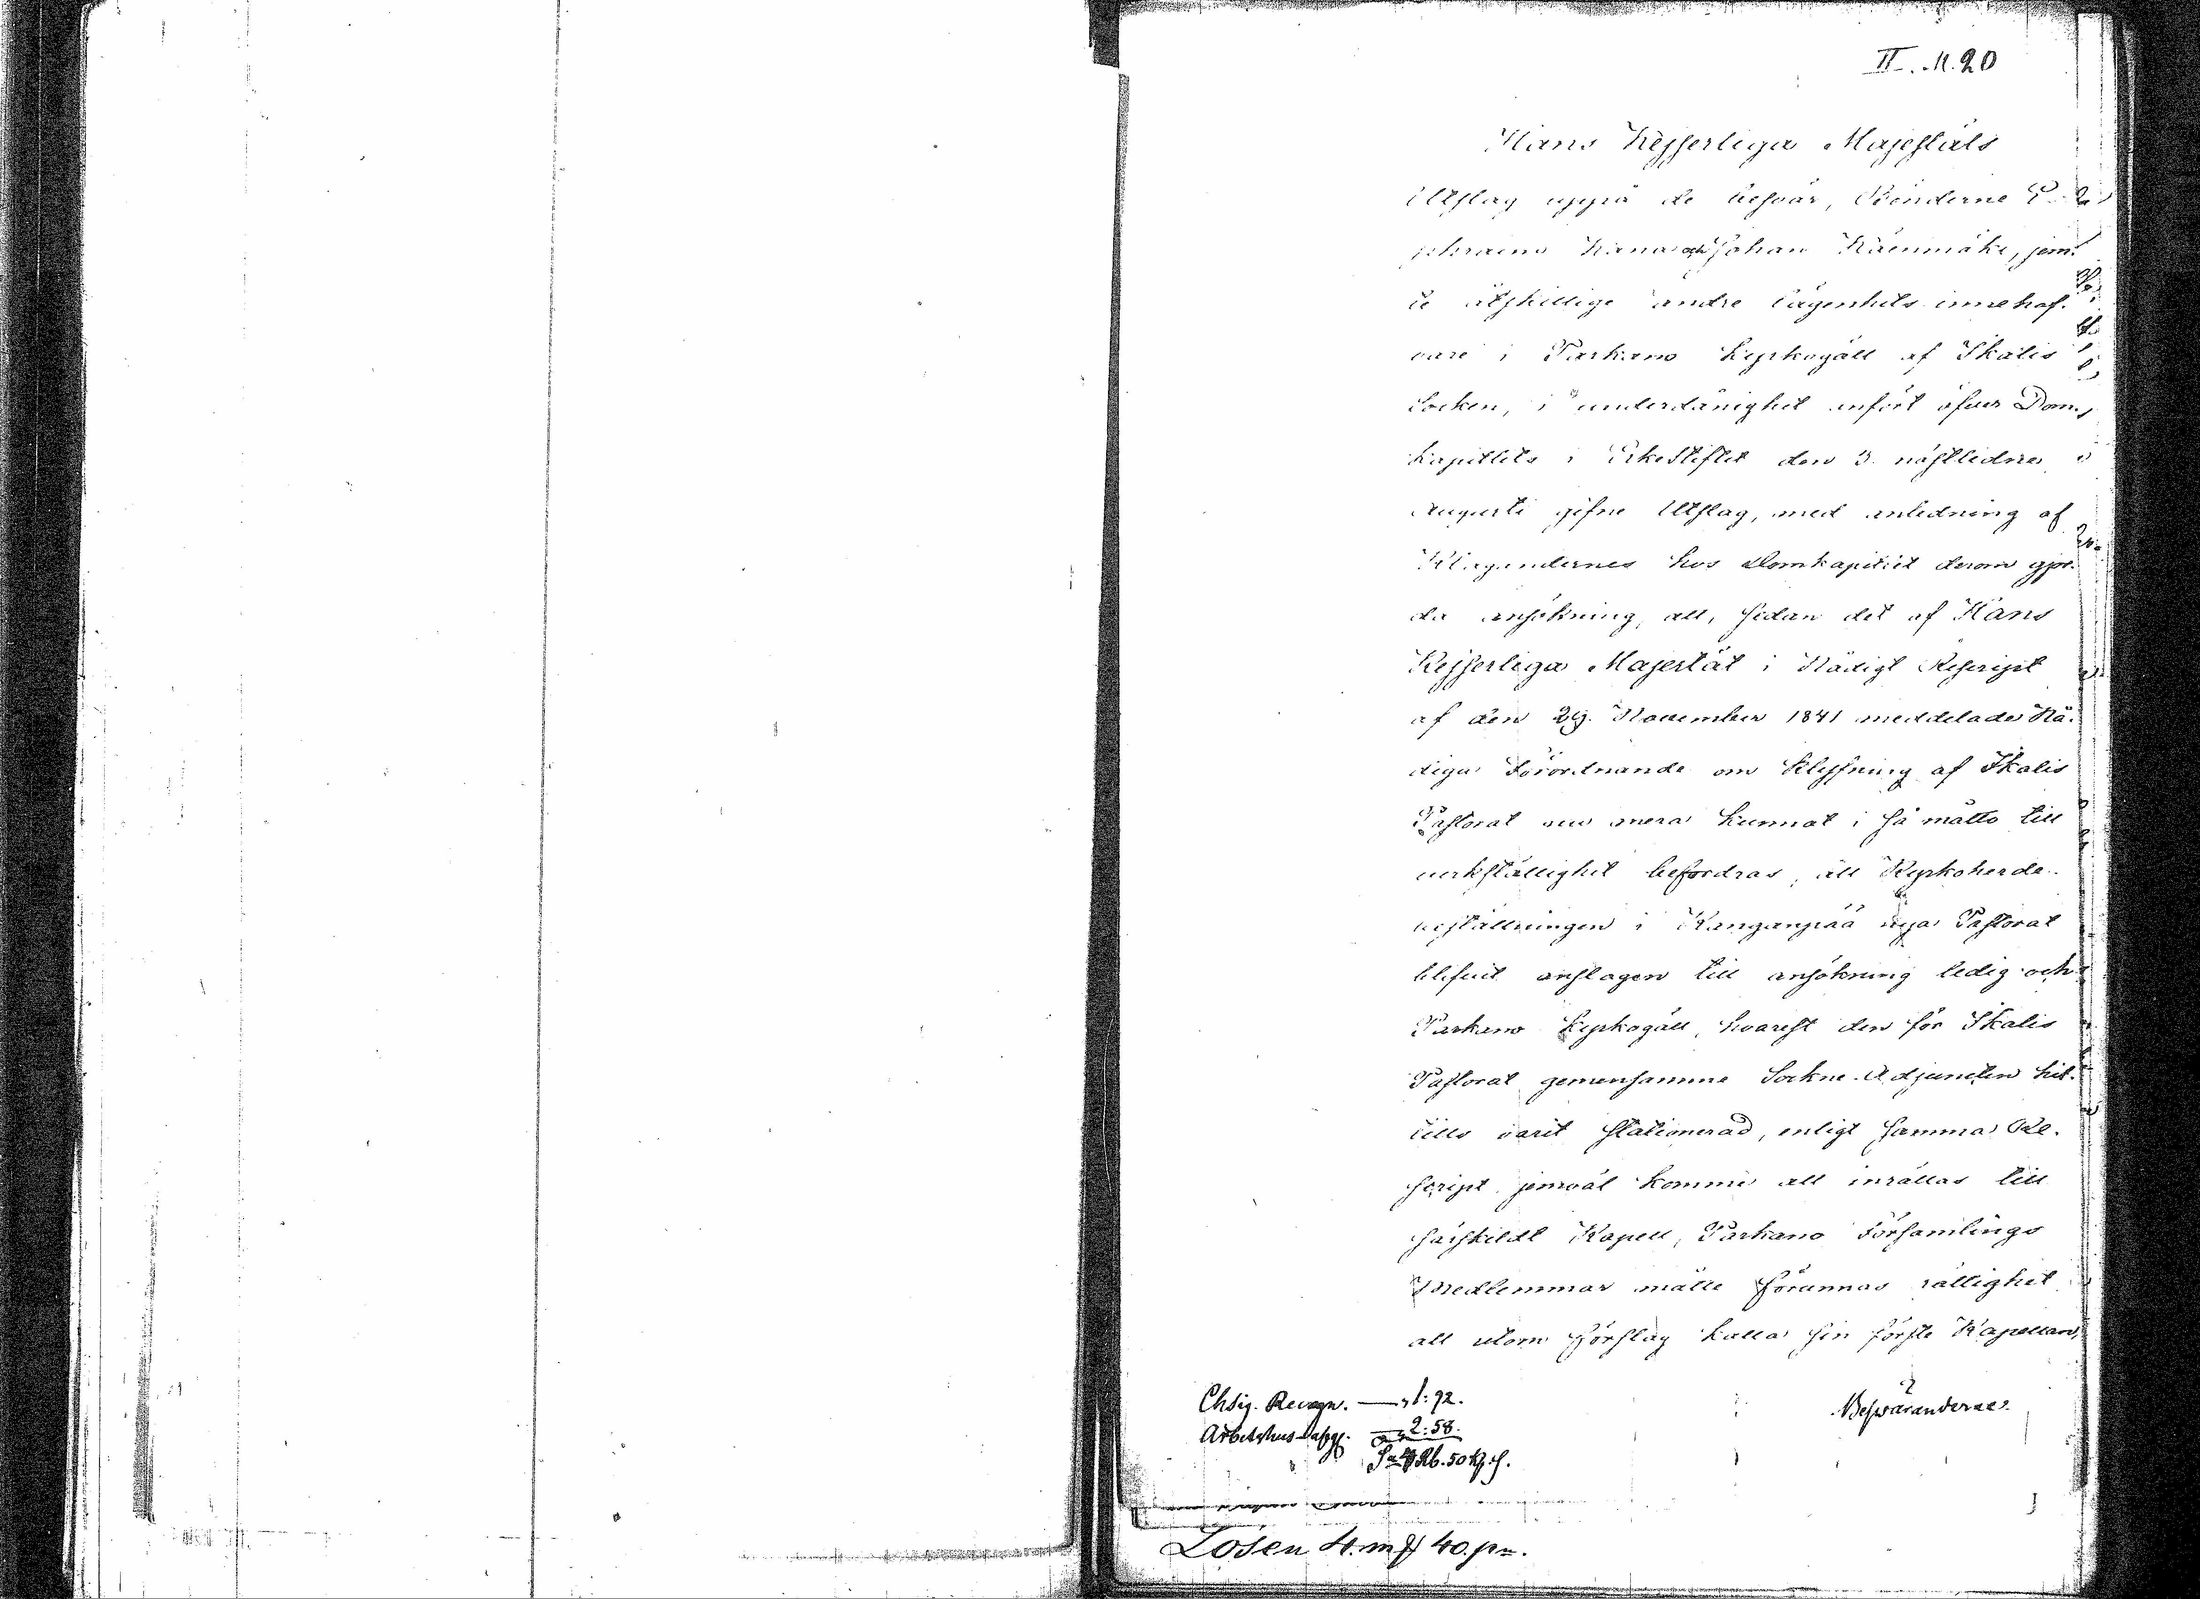 II. M. 20
Hans Kejserliga Majestäts
Utslag uppå de besvär, Bönderne E-
phraim Kana och Johan Käenmäki, jem-
te åtskillige andre lägenhets innehaf-
vare i Parkano kyrkogäll af Ikalis
Socken, i underdånighet anfört öfver Dom-
kapitlets i ErkeStiftet den 3. nästledne
Augusti gifne Utslag, med anledning af
Klagandernes hos Domkapitlet derom gjor-
da ansökning, att, sedan det af Hans
Kejserliga Majestät i Nådigt Rescript
af den 29. November 1841 meddelade Nå-
diga Förordnande om klyfning af Ikalis
Pastorat nu mera kunnat i så måtto till
verkställighet befordras, att Kyrkoherde-
beställningen i Kanganpää nya Pastorat
blifvit anslagen till ansökning ledig och
Parkano kyrkogäll, hvarest den för Ikalis
Pastorat gemensamme Sockne-Adjuncten hit-
tills varit stationerad, enligt samma Re-
script jemväl komme att inrättas till
särskildt Kapell, Parkano Församlings
Medlemmar måtte förunnas rättighet
att utom förslag kalla sin förste Kapellan,
Besvärandernes
Chsig. Recogn. — 1: 92.
Arbetshus — 2: 58.
Sa 4 Rb. 50 kop. S.
Lösen 4. mk 40. pn.